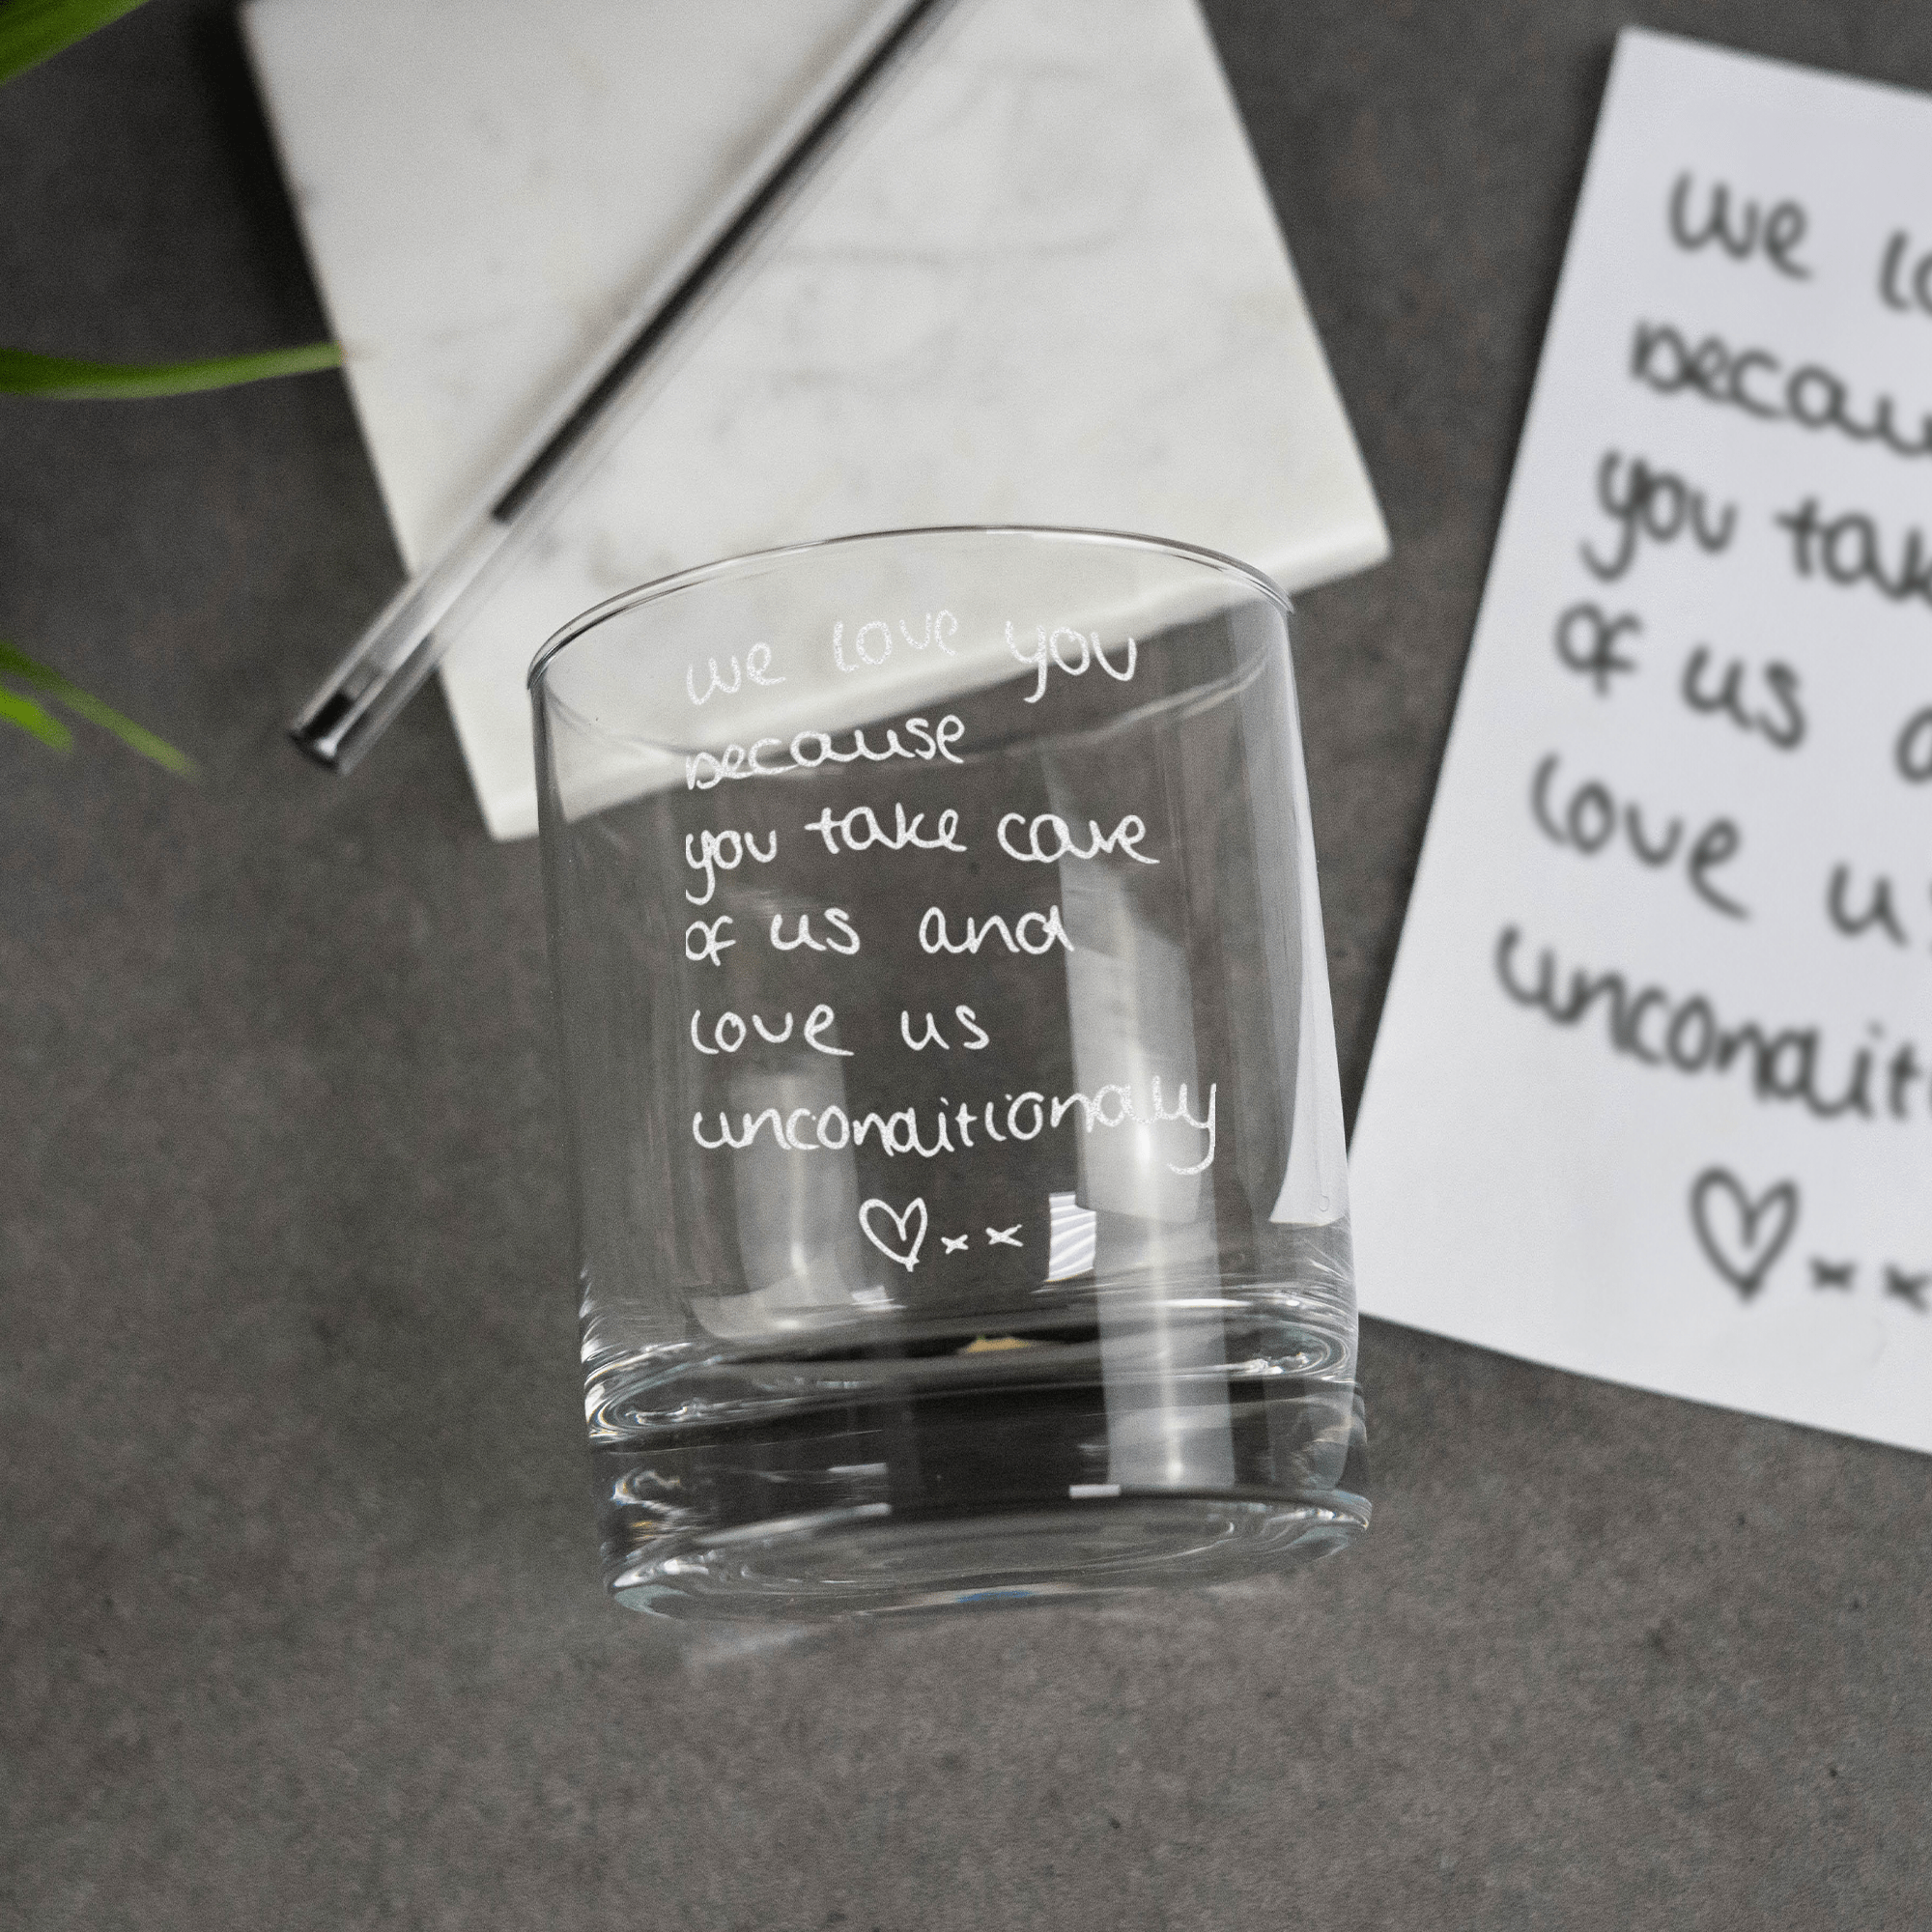 we love you
because
you take care
of us and
love us
unconditionally
♡ x x
we lo
becau
you tak
of us a
love u
unconditi
♡ x x